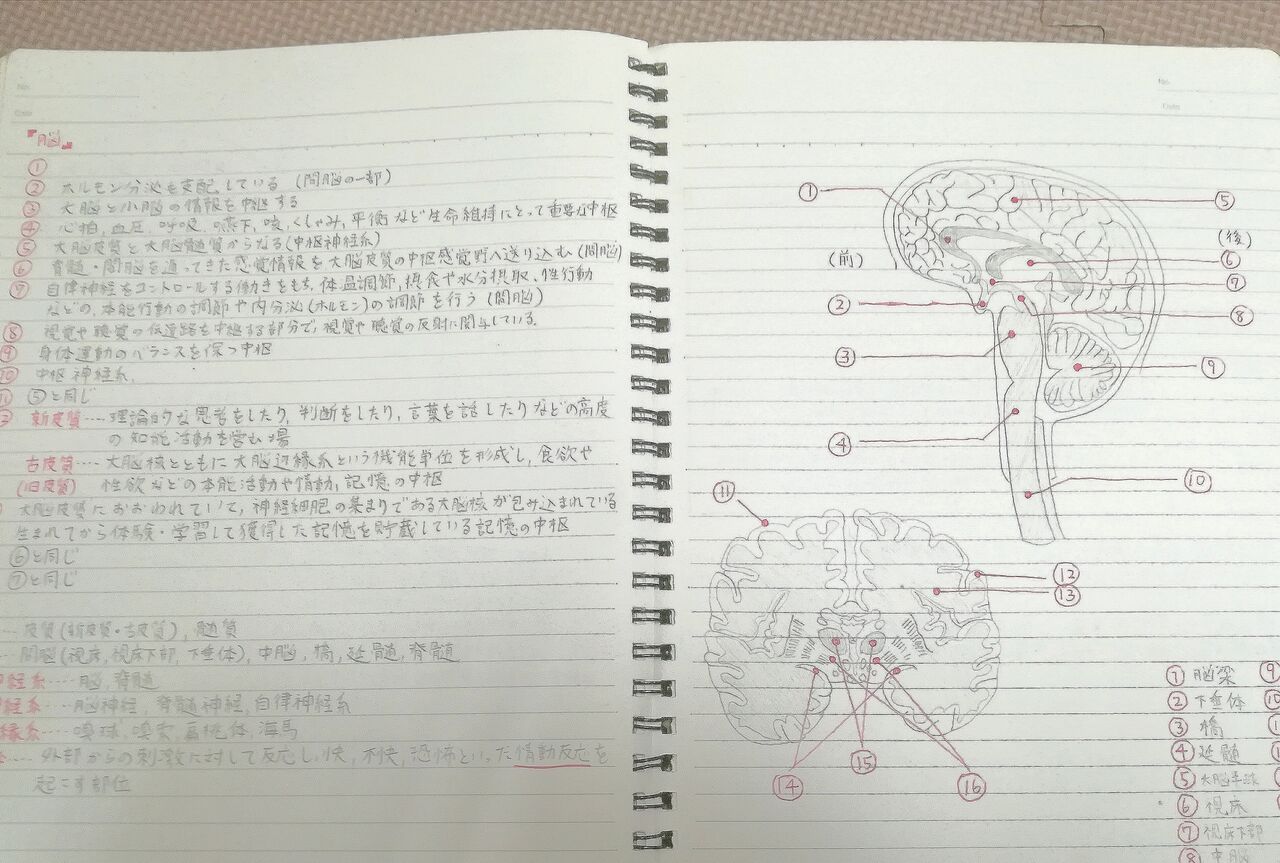 『脳』
①
② ホルモン分泌を支配している (間脳の一部)
③ 大脳と小脳の情報を中継する
④ 心拍, 血圧, 呼吸, 嚥下, 咳, くしゃみ, 平衡など生命維持にとって重要な中枢
⑤ 大脳皮質と大脳髄質からなる(中枢神経系)
⑥ 脊髄・間脳を通ってきた感覚情報を大脳皮質の中枢感覚野へ送り込む(間脳)
⑦ 自律神経をコントロールする働きをもち, 体温調節, 摂食や水分摂取、性行動
などの, 本能行動の調節や内分泌(ホルモン)の調節を行う (間脳)
⑧ 視覚や聴覚の伝達路を中継する部分で, 視覚や聴覚の反射に関与している.
⑨ 身体運動のバランスを保つ中枢
⑩ 中枢神経系.
⑤と同じ
新皮質‥‥理論的な思考をしたり, 判断をしたり, 言葉を話したりなどの高度
の知能活動を営む場
古皮質‥‥大脳核とともに大脳辺縁系という機能単位を形成し, 食欲や
(旧皮質) 性欲などの本能活動や情動, 記憶の中枢
大脳皮質におおわれていて, 神経細胞の集まりである大脳核が包み込まれている
生まれてから体験・学習して獲得した記憶を貯蔵している記憶の中枢
⑥と同じ
⑦と同じ
皮質(新皮質・古皮質), 髄質
間脳(視床, 視床下部, 下垂体), 中脳, 橋, 延髄, 脊髄
経系‥‥脳, 脊髄
経系‥‥脳神経, 脊髄神経, 自律神経系
縁系‥‥嗅球, 嗅索, 扁桃体, 海馬
‥‥外部からの刺激に対して反応し, 快, 不快, 恐怖といった情動反応を
起こす部位
①
⑤
(前)
(後)
⑥
⑦
②
⑧
③
⑨
④
⑩
⑪
⑫
⑬
⑭
⑮
⑯
① 脳梁 ⑨
② 下垂体 ⑩
③ 橋
④ 延髄
⑤ 大脳半球
⑥ 視床
⑦ 視床下部
⑧ 中脳